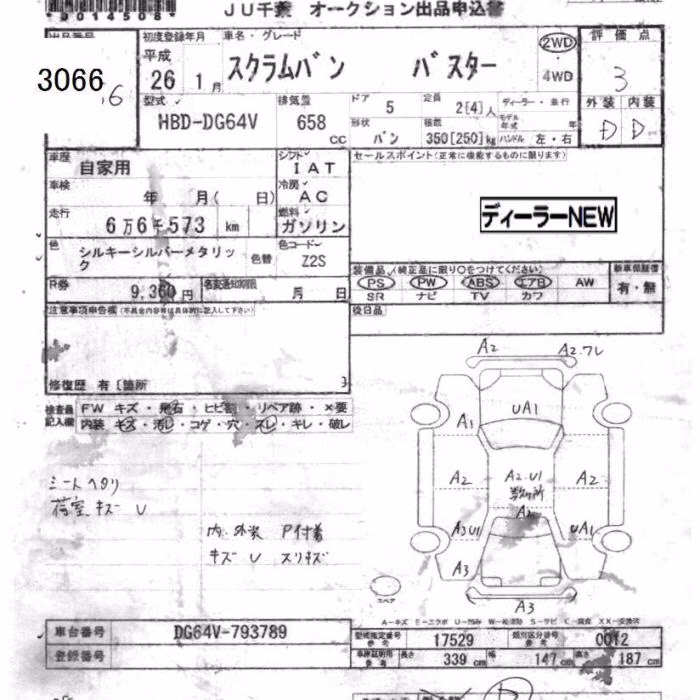 *0014508*
JU千葉 オークション出品申込書
出品番号
3066
初度登録年月
平成
26 1月
車名・グレード
スクラムバン バスター
2WD
4WD
評価点
3
外装 内装
D D
型式
HBD-DG64V
排気量
658 cc
ドア 5
定員 2[4]人
ディーラー・並行
モデル年式 年
形状 バン
積載 350[250]kg
ハンドル 左・右
車歴
自家用
シフト
IAT
車検
年 月( 日)
冷房
AC
走行
6万6千573 km
燃料
ガソリン
色
シルキーシルバーメタリック
色替
色コード
Z2S
R券
9,360円
名変通知期限
月 日
セールスポイント(正常に機能するものに限ります)
ディーラーNEW
装備品(純正品に限り○をつけてください)
PS PW ABS エアB AW
SR ナビ TV カワ
新車保証書
有・無
後日品
注意事項申告欄(不具合内容等は具体的に記入して下さい)
修復歴 有[箇所 ]
検査員記入欄
FW キズ・飛石・ヒビ割・リペア跡・×要
内装 キズ・汚レ・コゲ・穴・スレ・キレ・破レ
シートヘタリ
荷室キズ U
内外装 P付着
キズ U スリキズ
A2
A2.フレ
UA1
A1
A2
A2.U1
数ヶ所
A2
A2
A3U1
UA1
A3
A3
スペア
A-キズ E-エクボ U-凹み W-板塗跡 S-サビ C-腐食 XX-交換済
車台番号
DG64V-793789
登録番号
型式指定番号 参考
17529
類別区分番号 参考
0012
車検証明用 参考
長さ 339 cm
幅 147 cm
高さ 187 cm